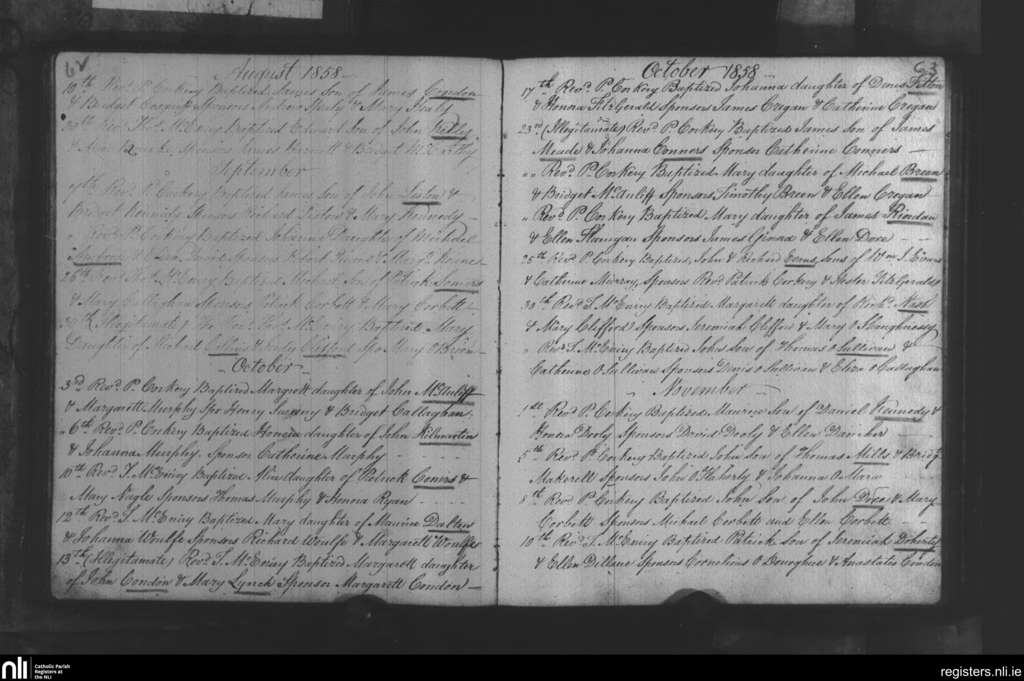 62
August 1858
10th Revd. P. Corkery Baptized James Son of James Condon
& Bridget Sponsors & Mary Healy
Revd. Thos. McEniry Baptized Edward Son of John Kelly
& Sponsors James & Bridget McCarthy
September
Revd. P. Corkery Baptized James Son of John &
Bridget Kennedy Sponsors Richard & Mary Kennedy
" Revd. P. Corkery Baptized Johanna Daughter of Michael
Sponsors Robert & Mary
26th Revd. McEniry Baptized Michael Son of Patrick Somers
& Mary Callaghan Sponsors Patrick Corbett & Mary Corbett
(Illegitimate) Revd. Thos. McEniry Baptized Mary
Daughter of Michael Collins & Clifford Spo Mary O Brien
October
3rd Revd. P. Corkery Baptized Margrett daughter of John McAuliff
& Margarett Murphy Spo Henry & Bridget Callaghan
" 6th Revd. P. Corkery Baptized Honora daughter of John Kilmartin
& Johanna Murphy Sponsor Catherine Murphy
10th Revd. T. McEniry Baptized daughter of Patrick Coners &
Mary Nagle Sponsors Thomas Murphy & Honora Ryan
12th Revd. T. McEniry Baptized Mary daughter of Maurice Dalton
& Johanna Woulfe Sponsors Richard Woulfe & Margarett Woulfe
13th (Illegitamate) Revd. T. McEniry Baptized Margarett daughter
of John Condon & Mary Lynch Sponsor Margarett Condon
63
October 1858
17th Revd. P. Corkery Baptized Johanna daughter of Denis
& Honna FitzGerald Sponsors James Cregan & Catherine Cregan
23rd (Illegitamate) Revd. P. Corkery Baptized James Son of James
Meade & Johanna Connors Sponsor Catherine Connors
" " Revd. P. Corkery Baptized Mary daughter of Michael Breen
& Bridget McAuliff Sponsors Timothy Breen & Ellen Cregan
" Revd. P. Corkery Baptized Mary daughter of James Riordan
& Ellen Flanigan Sponsors James & Ellen Dore
25th Revd. P. Corkery Baptized John & Richard Sons of Wm. S.
& Catherine Sponsors Revd. Patrick Corkery & Hester FitzGerald
30th Revd. T. McEniry Baptized Margarett daughter of Nash
& Mary Clifford Sponsors Jeremiah Clifford & Mary O Shoughnessy
" Revd. T. McEniry Baptized John Son of Thomas O Sullivan &
Catherine O Sullivan Sponsors Denis O Sullivan & Eliza O Callaghan
November
1st Revd. P. Corkery Baptized Maurice Son of Daniel Kennedy &
Honora Dooly Sponsors David Dooly & Ellen
5th Revd. P. Corkery Baptized John Son of Thomas Mills & Bridgt
Makerell Sponsors John O Flaherty & Johanna O Mara
8th Revd. P. Corkery Baptized John Son of John Dore & Mary
Corbett Sponsors Michael Corbett and Ellen Corbett
10th Revd. T. McEniry Baptized Patrick Son of Jeremiah Doherty
& Ellen Dillane Sponsors Cornelius O Donoghue & Anastatia Condon
nli
Catholic Parish
Registers at
the NLI
registers.nli.ie